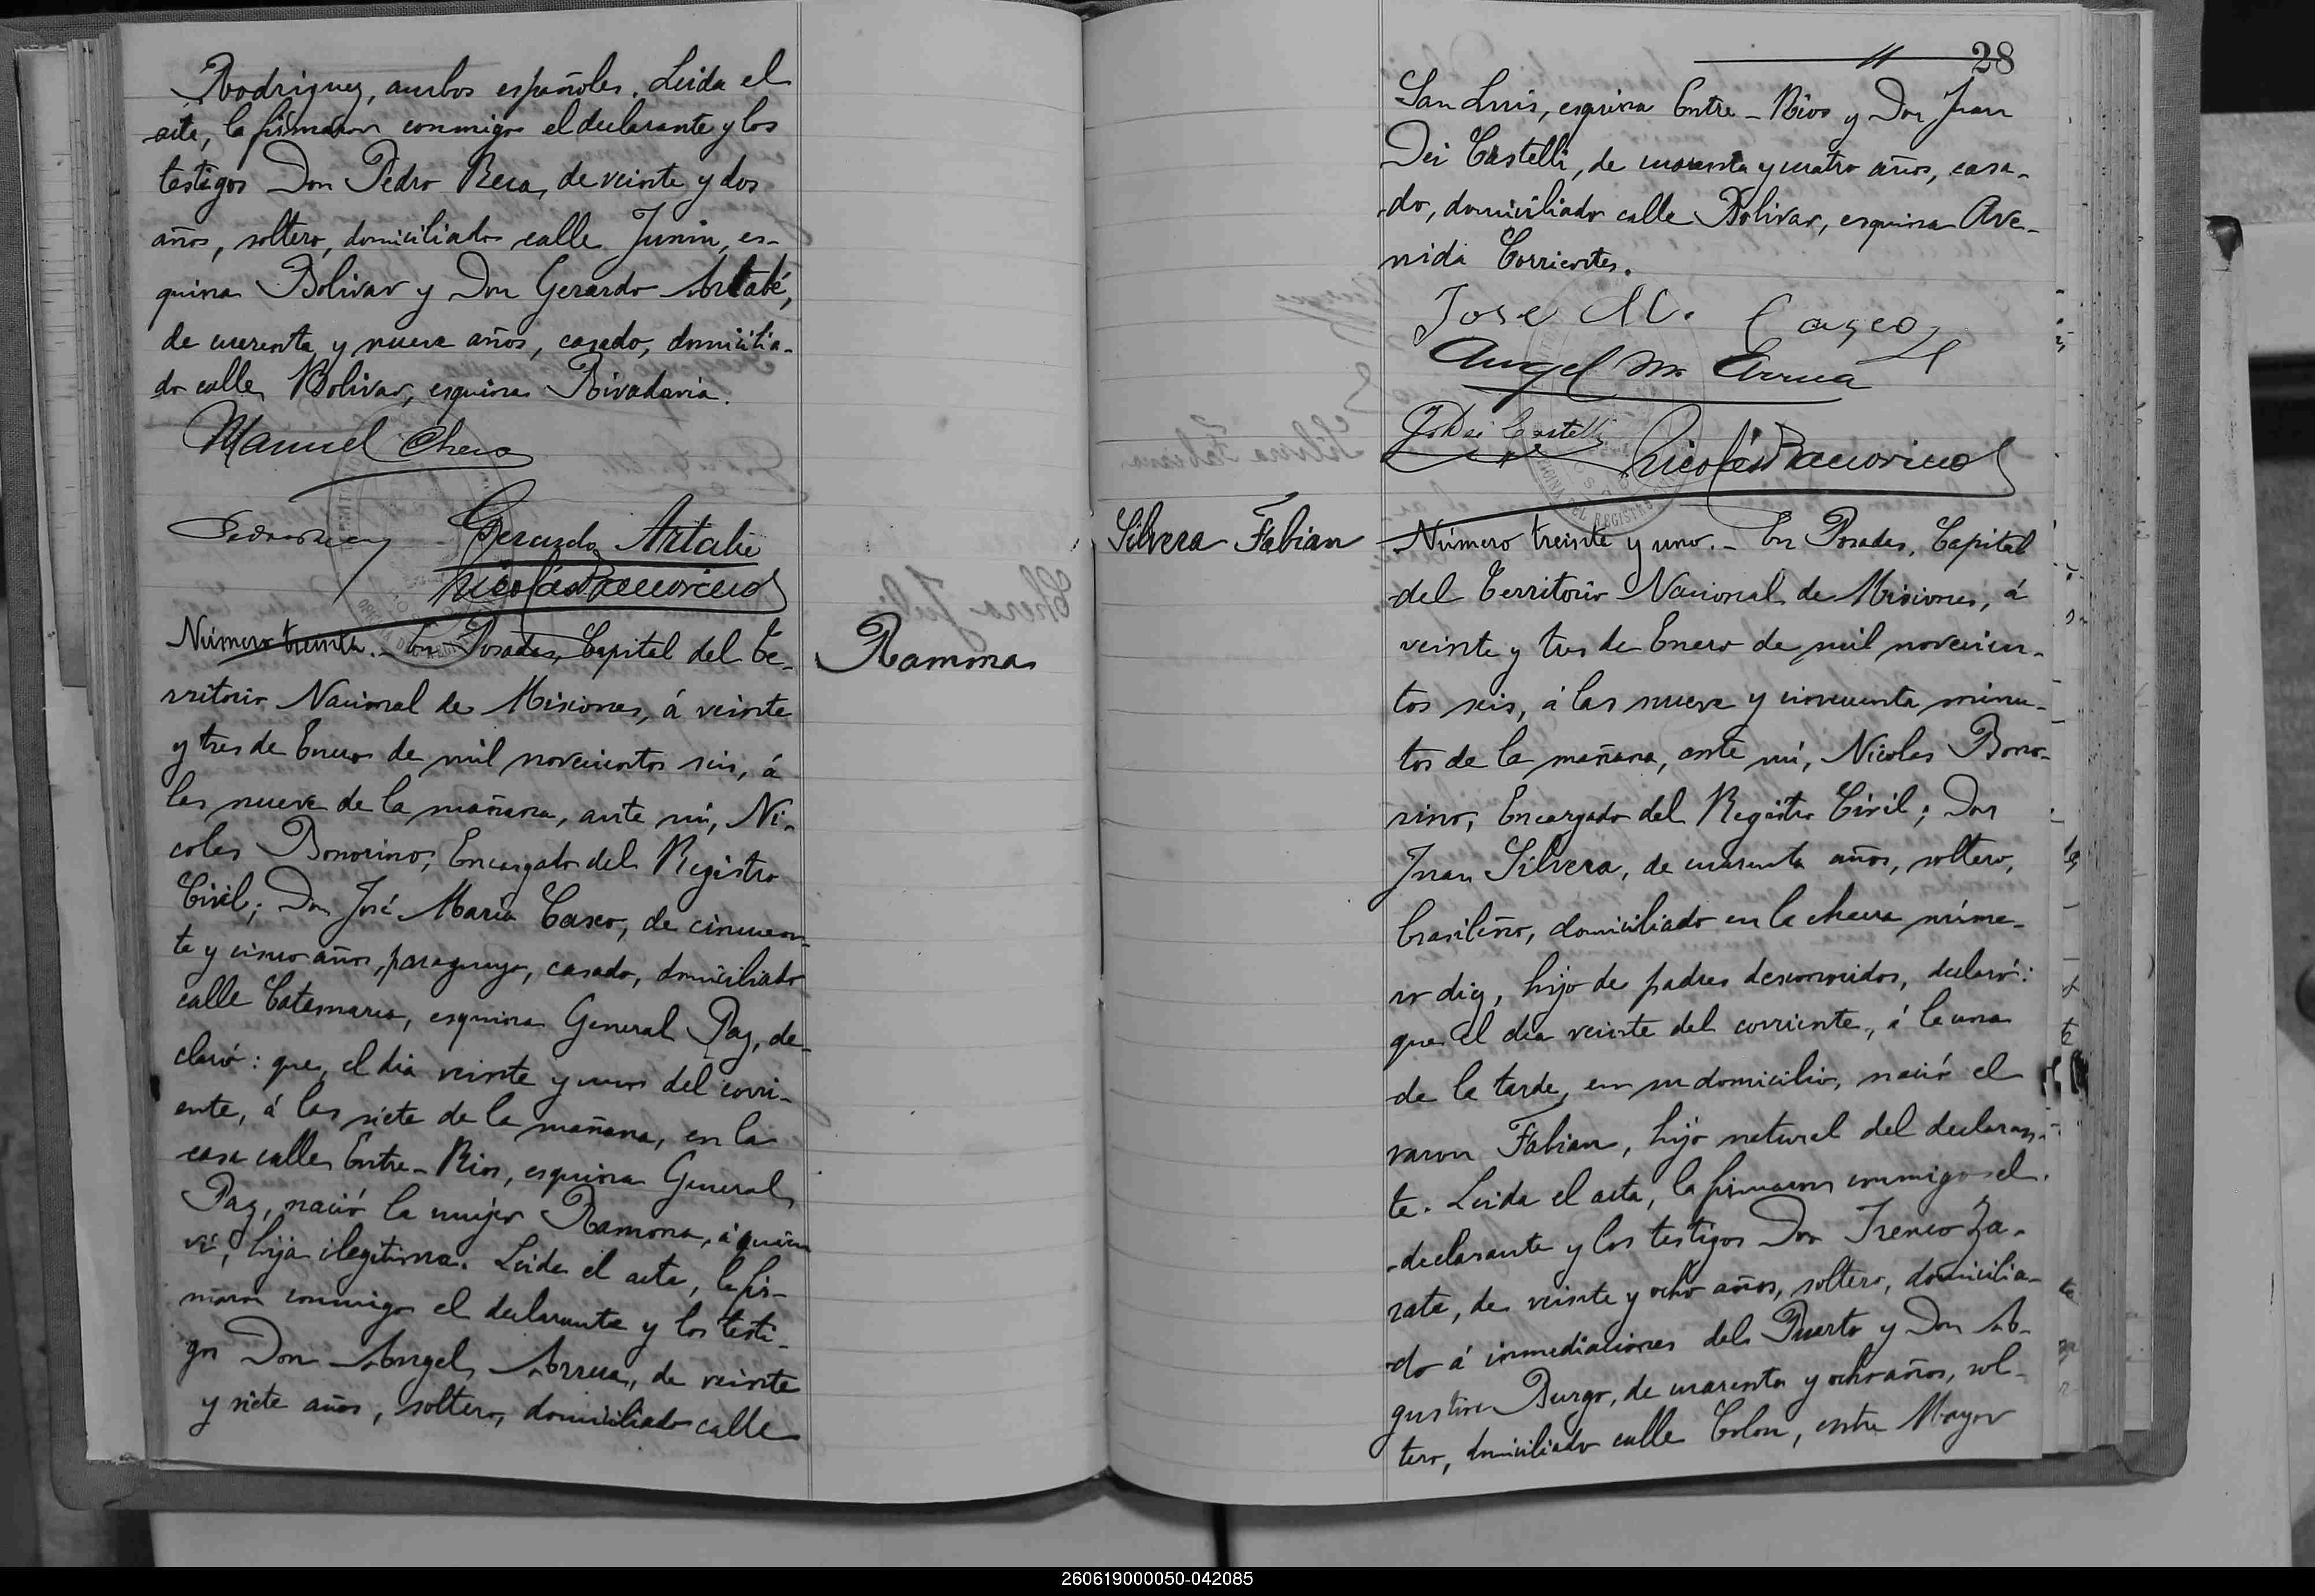 Rodriguez, ambos españoles. Leida el
acta, la firmaron conmigo el declarante y los
testigos Don Pedro Reca, de veinte y dos
años, soltero, domiciliado calle Junin, es-
quina Bolivar y Don Gerardo Artabé,
de cuarenta y nueve años, casado, domicilia-
do calle Bolivar, esquina Rivadavia.
Manuel Chero
Gerardo Artabe
Nicolás Bonorino
Ramona
Número treinta. - En Posadas, Capital del Te-
rritorio Nacional de Misiones, á veinte
y tres de Enero de mil novecientos seis, á
las nueve de la mañana, ante mí, Ni-
colas Bonorino, Encargado del Registro
Civil; Don José Maria Casco, de cincuen-
ta y cinco años, paraguayo, casado, domiciliado
calle Catamarca, esquina General Paz, de-
claró: que, el dia veinte y uno del corri-
ente, á las siete de la mañana, en la
casa calle Entre-Rios, esquina General
Paz, nació la mujer Ramona, á quien
ví, hija ilegitima. Leida el acta, la fir-
maron conmigo el declarante y los testi-
gos Don Angel Arrua, de veinte
y siete años, soltero, domiciliado calle
28
San Luis, esquina Entre-Rios y Don Juan
Dei Castelli, de cuarenta y cuatro años, casa-
do, domiciliado calle Bolivar, esquina Ave-
nida Corrientes.
Jose M. Casco
Angel M. Arrua
J. Dei Castelli
Nicolás Bonorino
Silvera Fabian
Número treinta y uno. - En Posadas, Capital
del Territorio Nacional de Misiones, á
veinte y tres de Enero de mil novecien-
tos seis, á las nueve y cincuenta minu-
tos de la mañana, ante mí, Nicolas Bono-
rino, Encargado del Registro Civil; Don
Juan Silvera, de cuarenta años, soltero,
brasileño, domiciliado en la chacra núme-
ro diez, hijo de padres desconocidos, declaró:
que el dia veinte del corriente, á la una
de la tarde, en su domicilio, nació el
varon Fabian, hijo natural del declaran-
te. Leida el acta, la firmaron conmigo el
declarante y los testigos Don Ireneo Za-
rate, de veinte y ocho años, soltero, domicilia-
do á inmediaciones del Puerto y Don A-
gustin Burgo, de cuarenta y ocho años, sol-
tero, domiciliado calle Colon, entre Mayor
260619000050-042085